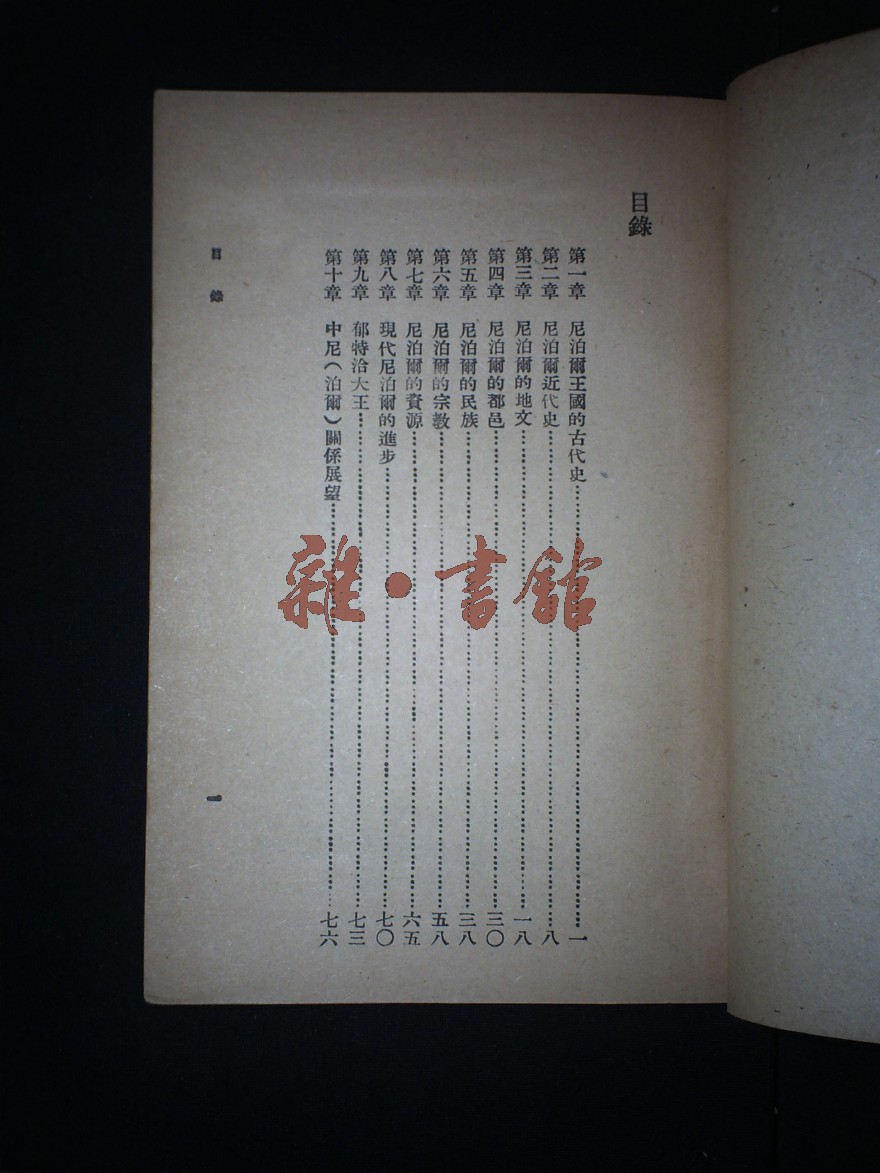 目錄
第一章 尼泊爾王國的古代史……一
第二章 尼泊爾近代史……八
第三章 尼泊爾的地文……一八
第四章 尼泊爾的都邑……三〇
第五章 尼泊爾的民族……三八
第六章 尼泊爾的宗教……五八
第七章 尼泊爾的資源……六五
第八章 現代尼泊爾的進步……七〇
第九章 郁特洽大王……七三
第十章 中尼(泊爾)關係展望……七六
目錄 一
雜·書館